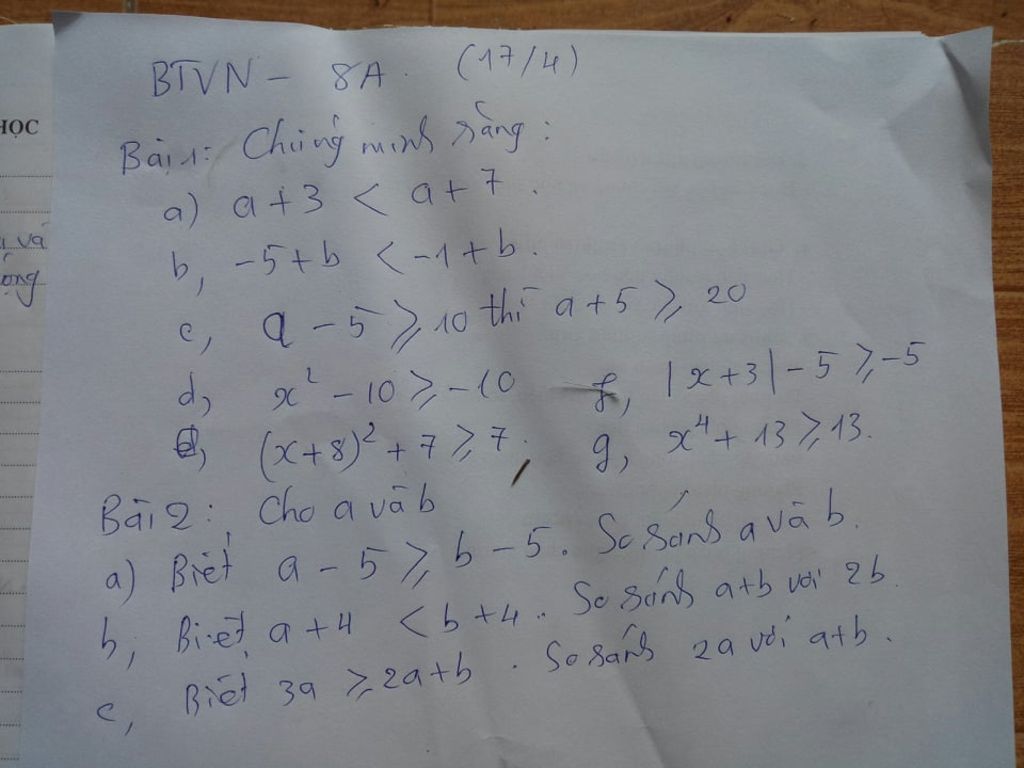 BTVN - 8A. (17/4)
HỌC
Bài 1: Chứng minh rằng:
a) a + 3 < a + 7.
b, -5 + b < -1 + b.
c, a - 5 ⩾ 10 thì a + 5 ⩾ 20
d, x² - 10 ⩾ -10 f, |x + 3| - 5 ⩾ -5
e, (x + 8)² + 7 ⩾ 7. g, x⁴ + 13 ⩾ 13.
và
ộng
Bài 2: Cho a và b
a) Biết a - 5 ⩾ b - 5. So sánh a và b.
b, Biết a + 4 < b + 4. So sánh a + b với 2b.
c, Biết 3a ⩾ 2a + b. So sánh 2a với a + b.